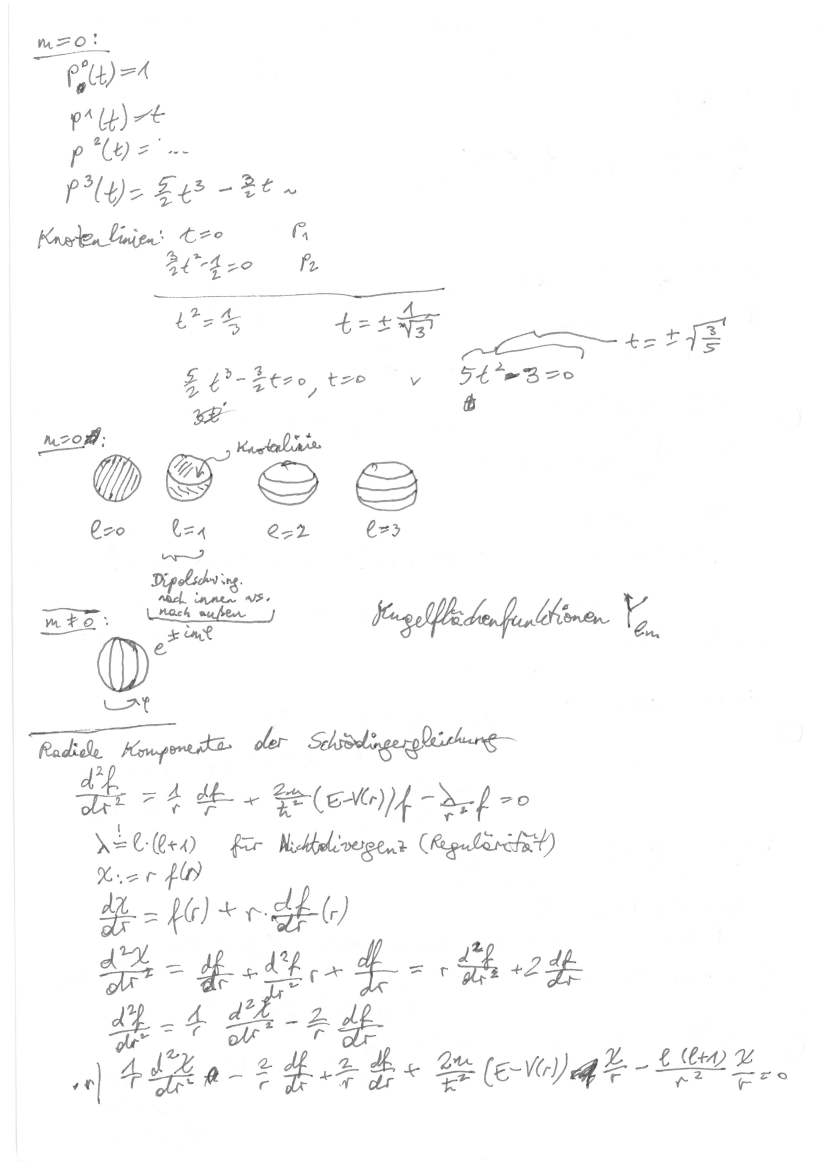 m=0:
P₀⁰(t)=1
P¹(t)=t
P²(t)= ...
P³(t)= 5/2 t³ - 3/2 t ~
Knotenlinien: t=0 P₁
3/2 t² - 1/2 = 0 P₂
t² = 1/3 t = ± 1/√3
t = ± √(3/5)
5/2 t³ - 3/2 t = 0, t=0 ∨ 5t² - 3 = 0
m=0:
Knotenlinie
l=0 l=1 l=2 l=3
Dipolschwing.
nach innen vs.
nach außen
m ≠ 0: Kugelflächenfunktionen Y_lm
e^(±imφ)
φ
Radiale Komponente der Schrödingergleichung
d²f/dr² = 1/r df/r + 2m/ħ² (E-V(r)) f - λ/r² f = 0
λ =! l·(l+1) für Nichtdivergenz (Regulärität)
χ := r f(r)
dχ/dr = f(r) + r · df/dr (r)
d²χ/dr² = df/dr + d²f/dr² r + df/dr = r d²f/dr² + 2 df/dr
d²f/dr² = 1/r d²χ/dr² - 2/r df/dr
·r| 1/r d²χ/dr² - 2/r df/dr + 2/r df/dr + 2m/ħ² (E-V(r)) χ/r - l(l+1)/r² χ/r = 0